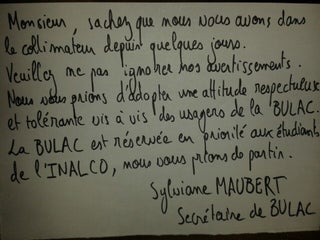 Monsieur, sachez que nous vous avons dans
le collimateur depuis quelques jours.
Veuillez ne pas ignorer nos avertissements.
Nous vous prions d'adopter une attitude respectueuse
et tolérante vis à vis des usagers de la BULAC.
La BULAC est réservée en priorité aux étudiants
de l'INALCO, nous vous prions de partir.
Sylviane MAUBERT
Secrétaire de BULAC